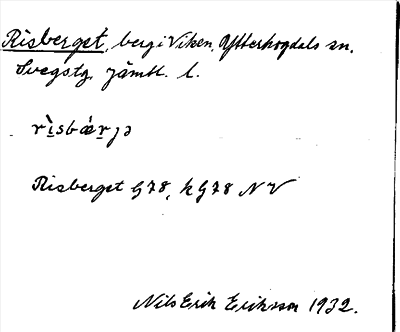 Risberget, berg i Viken, Ytterhogdals sn.
Svegs tg, Jämtl. l.
rìsbǽrjə
Risberget G78, k G78 NV
Nils Erik Eriksson 1932.